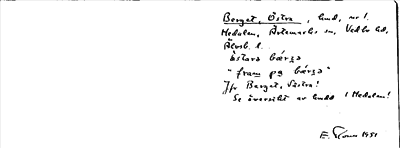 Berget, Östra, hmd, nr 1.
Medalen, Ärtemarks sn, Vedbo hd,
Älvsb. l.
östarə bárjə
"fram pə bárjə"
Jfr Berget, Västra!
Se översikt av hmd i Medalen!
E. 1951